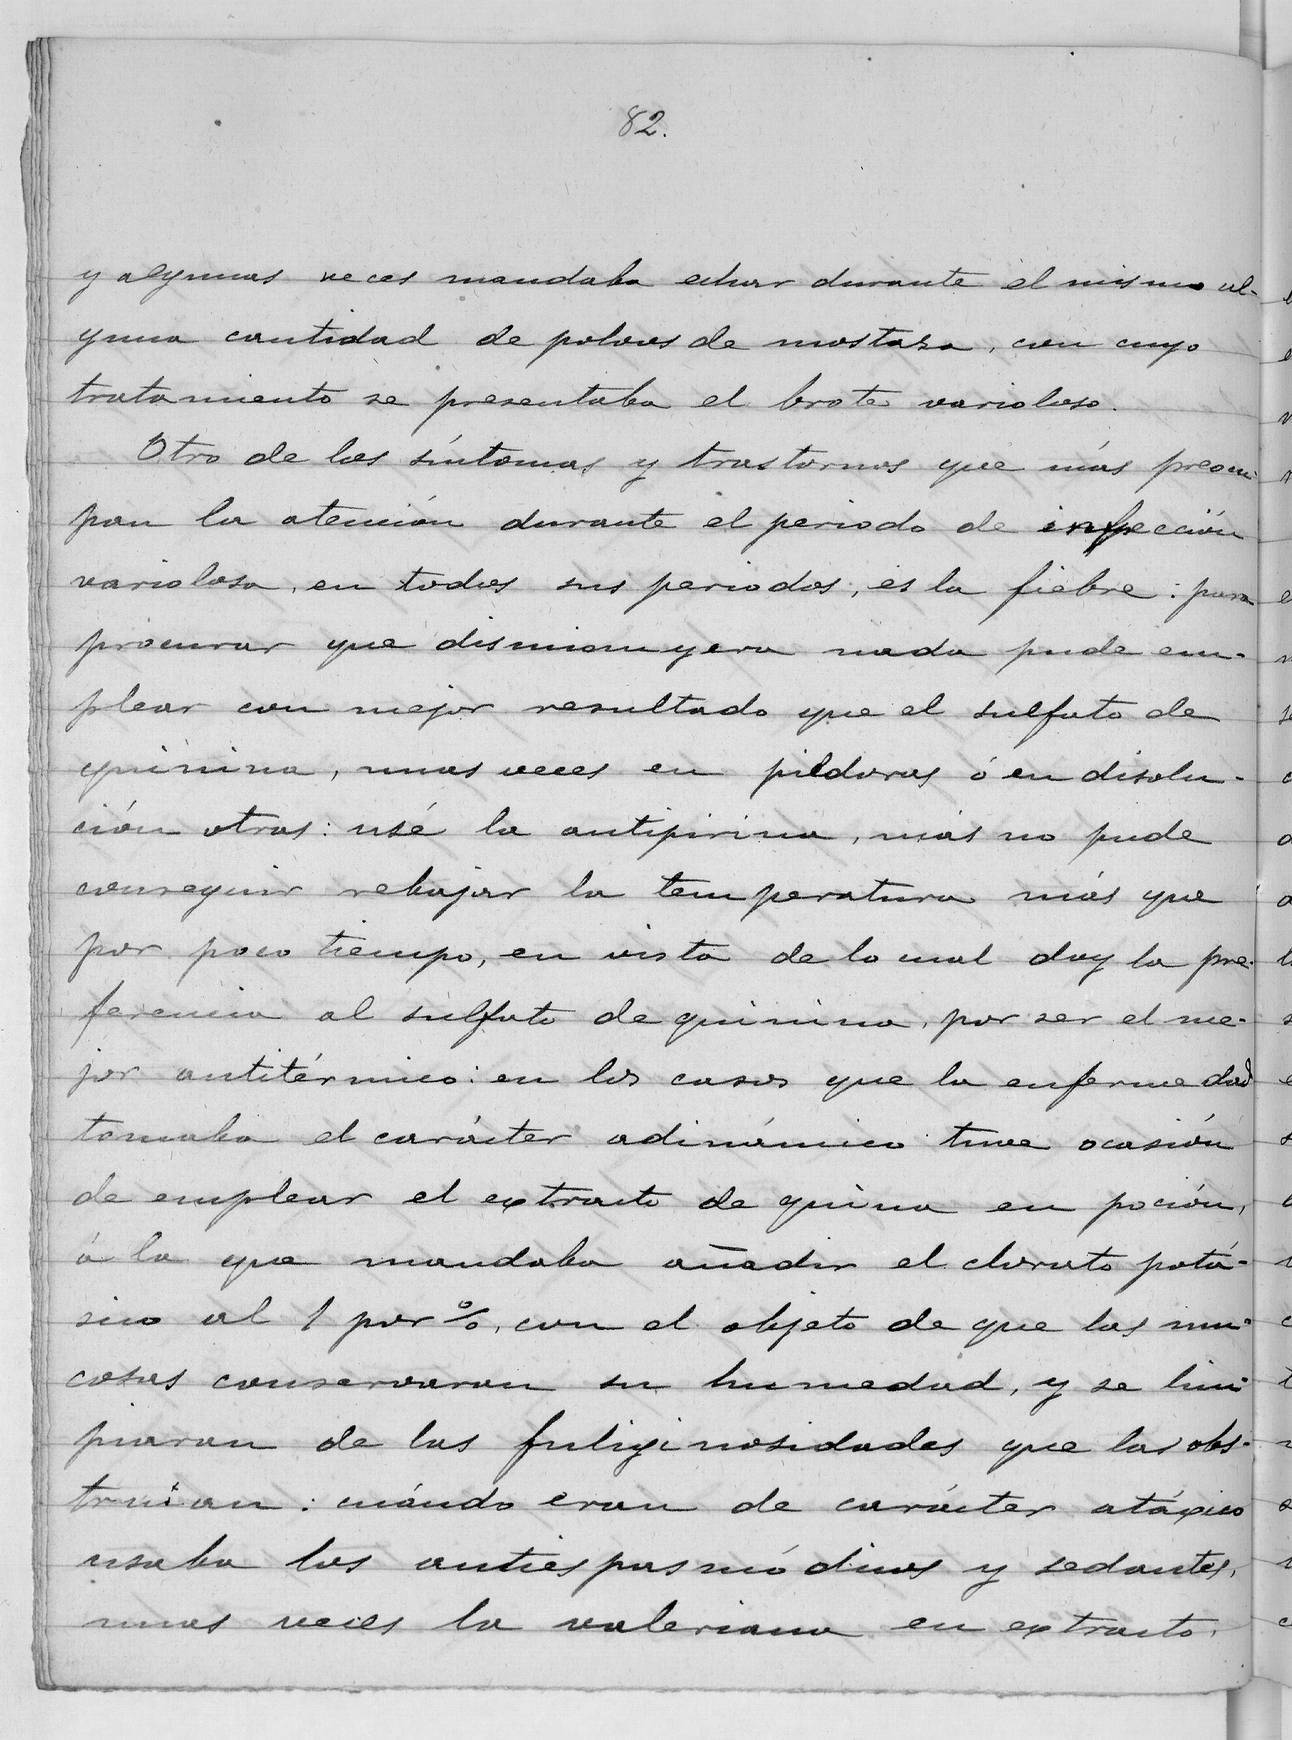 82.
y algunas veces mandaba echar durante el mismo al-
guna cantidad de polvos de mostaza, con cuyo
tratamiento se presentaba el brote varioloso.
Otro de los síntomas y trastornos que más preocu-
pan la atención durante el periodo de infección
variolosa, en todos sus periodos, es la fiebre: para
procurar que disminuyera nada pude em-
plear con mejor resultado que el sulfato de
quinina, unas veces en píldoras ó en disolu-
ción otras: usé la antipirina, más no pude
conseguir rebajar la temperatura más que
por poco tiempo, en vista de lo cual doy la pre-
ferencia al sulfato de quinina, por ser el me-
jor antitérmico: en los casos que la enfermedad
tomaba el carácter adinámico tuve ocasión
de emplear el extracto de quina en poción,
á la que mandaba añadir el clorato potá-
sico al 1 por %, con el objeto de que las mu-
cosas conservaran su humedad, y se lim-
piaran de las fuliginosidades que las obs-
truian: cuándo eran de carácter atáxico
usaba los antiespasmódicos y sedantes,
unas veces la valeriana en extracto,